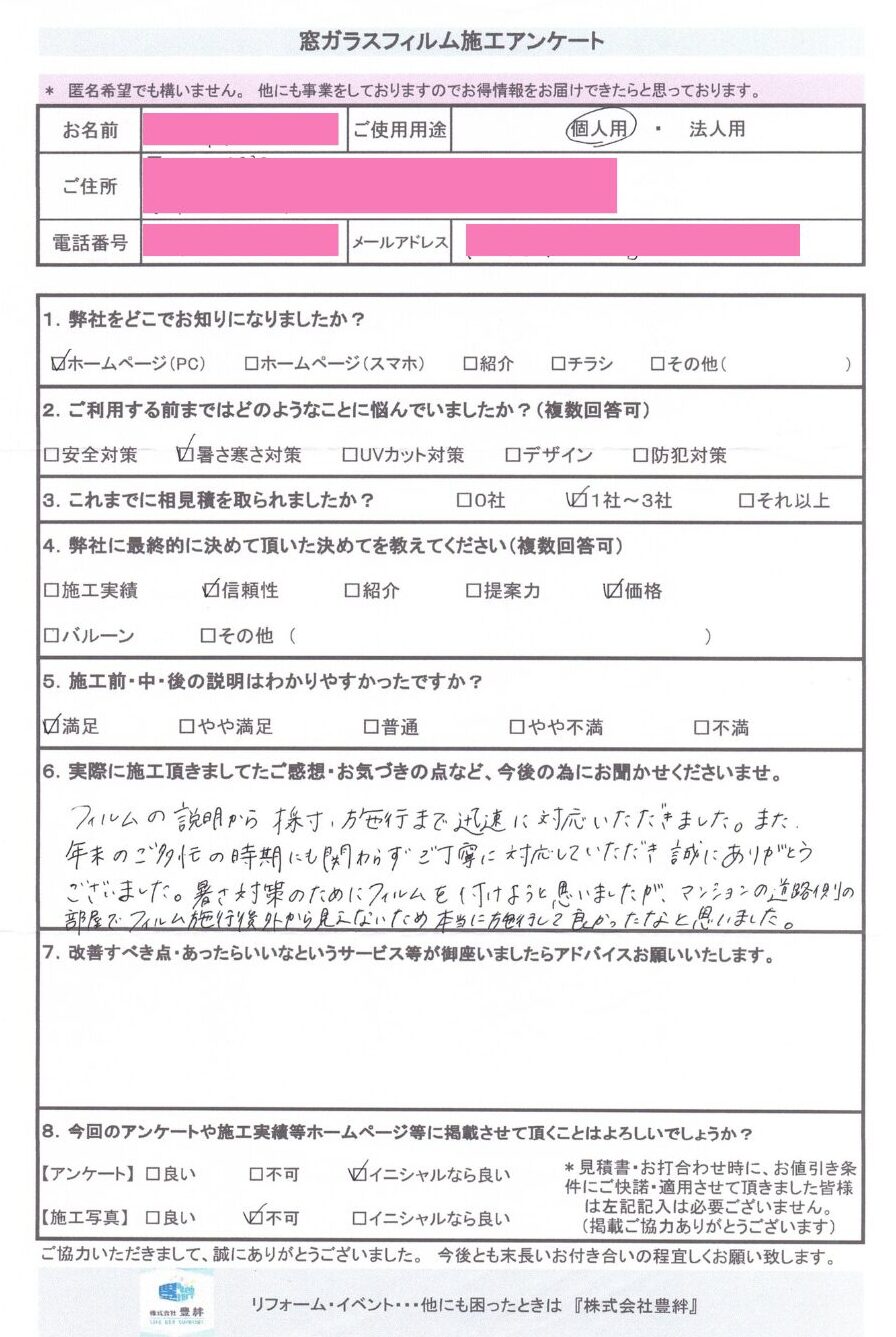 窓ガラスフィルム施工アンケート
* 匿名希望でも構いません。 他にも事業をしておりますのでお得情報をお届けできたらと思っております。
お名前 ご使用用途 個人用 ・ 法人用
ご住所
電話番号 メールアドレス
1. 弊社をどこでお知りになりましたか？
☑ホームページ(PC) □ホームページ(スマホ) □紹介 □チラシ □その他( )
2. ご利用する前まではどのようなことに悩んでいましたか？(複数回答可)
□安全対策 ☑暑さ寒さ対策 □UVカット対策 □デザイン □防犯対策
3. これまでに相見積を取られましたか？ □0社 ☑1社～3社 □それ以上
4. 弊社に最終的に決めて頂いた決めてを教えてください(複数回答可)
□施工実績 ☑信頼性 □紹介 □提案力 ☑価格
□バルーン □その他 ( )
5. 施工前・中・後の説明はわかりやすかったですか？
☑満足 □やや満足 □普通 □やや不満 □不満
6. 実際に施工頂きましてたご感想・お気づきの点など、今後の為にお聞かせくださいませ。
フィルムの説明から採寸、施行まで迅速に対応いただきました。また、
年末のご多忙の時期にも関わらずご丁寧に対応していただき誠にありがとう
ございました。暑さ対策のためにフィルムを付けようと思いましたが、マンションの道路側の
部屋でフィルム施行後外から見えないため本当に施行して良かったなと思いました。
7. 改善すべき点・あったらいいなというサービス等が御座いましたらアドバイスお願いいたします。
8. 今回のアンケートや施工実績等ホームページ等に掲載させて頂くことはよろしいでしょうか？
【アンケート】 □良い □不可 ☑イニシャルなら良い
【施工写真】 □良い ☑不可 □イニシャルなら良い
*見積書・お打合わせ時に、お値引き条
件にご快諾・適用させて頂きました皆様
は左記記入は必要ございません。
(掲載ご協力ありがとうございます)
ご協力いただきまして、誠にありがとうございました。 今後とも末長いお付き合いの程宜しくお願い致します。
株式会社 豊絆
リフォーム・イベント・・・他にも困ったときは 『株式会社豊絆』